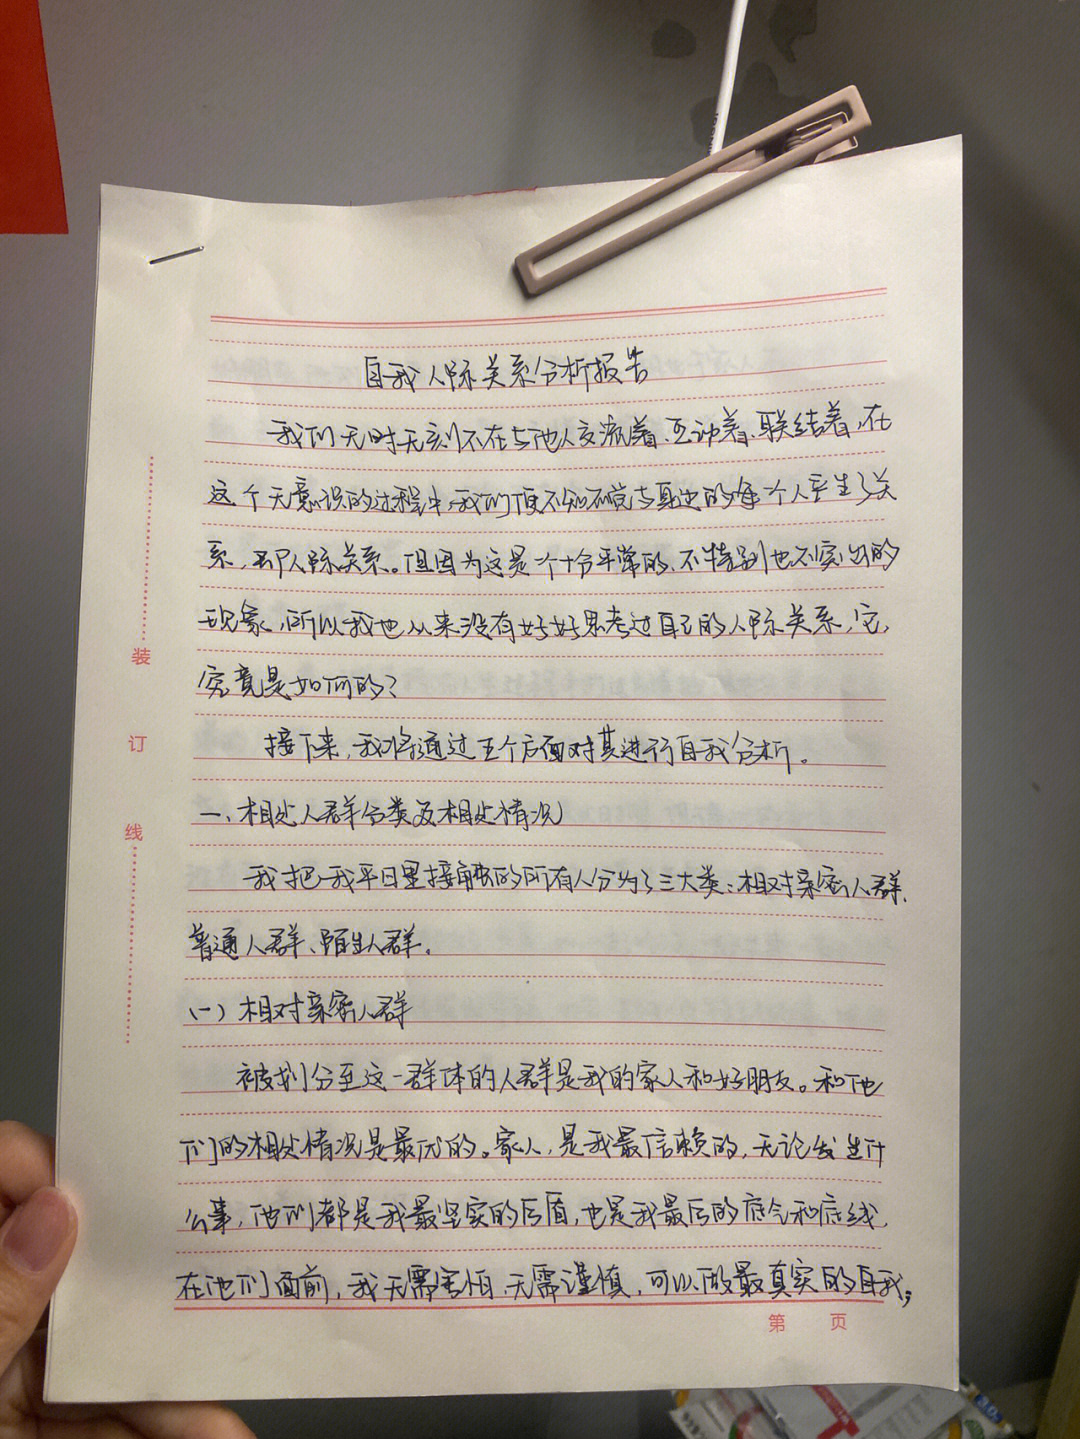 自我人际关系分析报告
我们无时无刻不在与他人交流着、互动着、联结着,在
这个无意识的过程中,我们便不知不觉与身边的每个人产生了关
系,即人际关系。但因为这是个十分平常的、不特别也不突出的
现象,所以我也从来没有好好思考过自己的人际关系,它
究竟是如何的?
接下来,我将通过五个方面对其进行自我分析。
一、相处人群分类及相处情况
我把我平日里接触的所有人分为了三大类:相对亲密人群、
普通人群、陌生人群。
(一)相对亲密人群
被划分至这一群体的人群是我的家人和好朋友。和他
们的相处情况是最优的。家人,是我最信赖的,无论发生什
么事,他们都是我最坚实的后盾,也是我最后的底气和底线,
在他们面前,我无需害怕,无需谨慎,可以做最真实的自我;
装
订
线
第 页